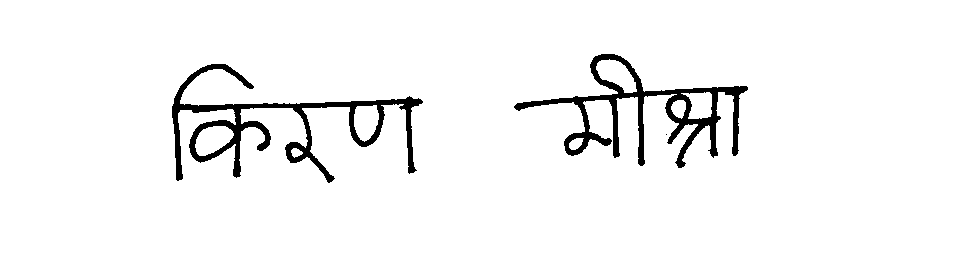 किरण मीश्रा